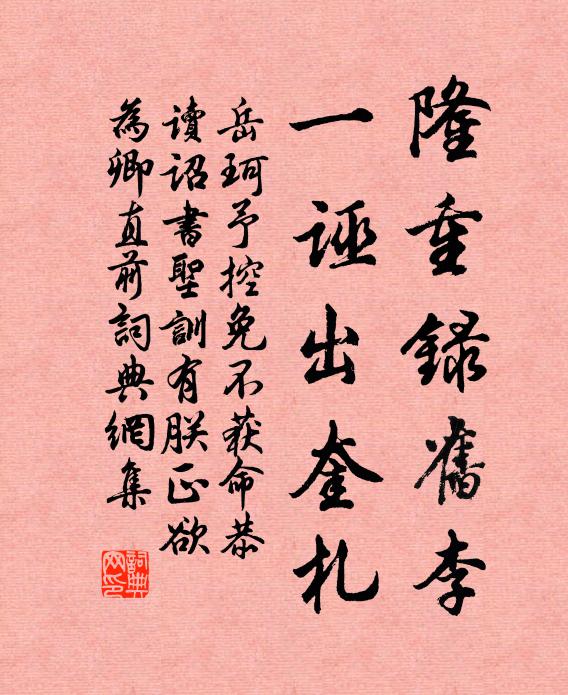 隆重錄舊李
一誣出奎札
岳珂予控免不获命恭
讀詔書聖訓有朕正欲
為卿直前詞典網集
詞典网印